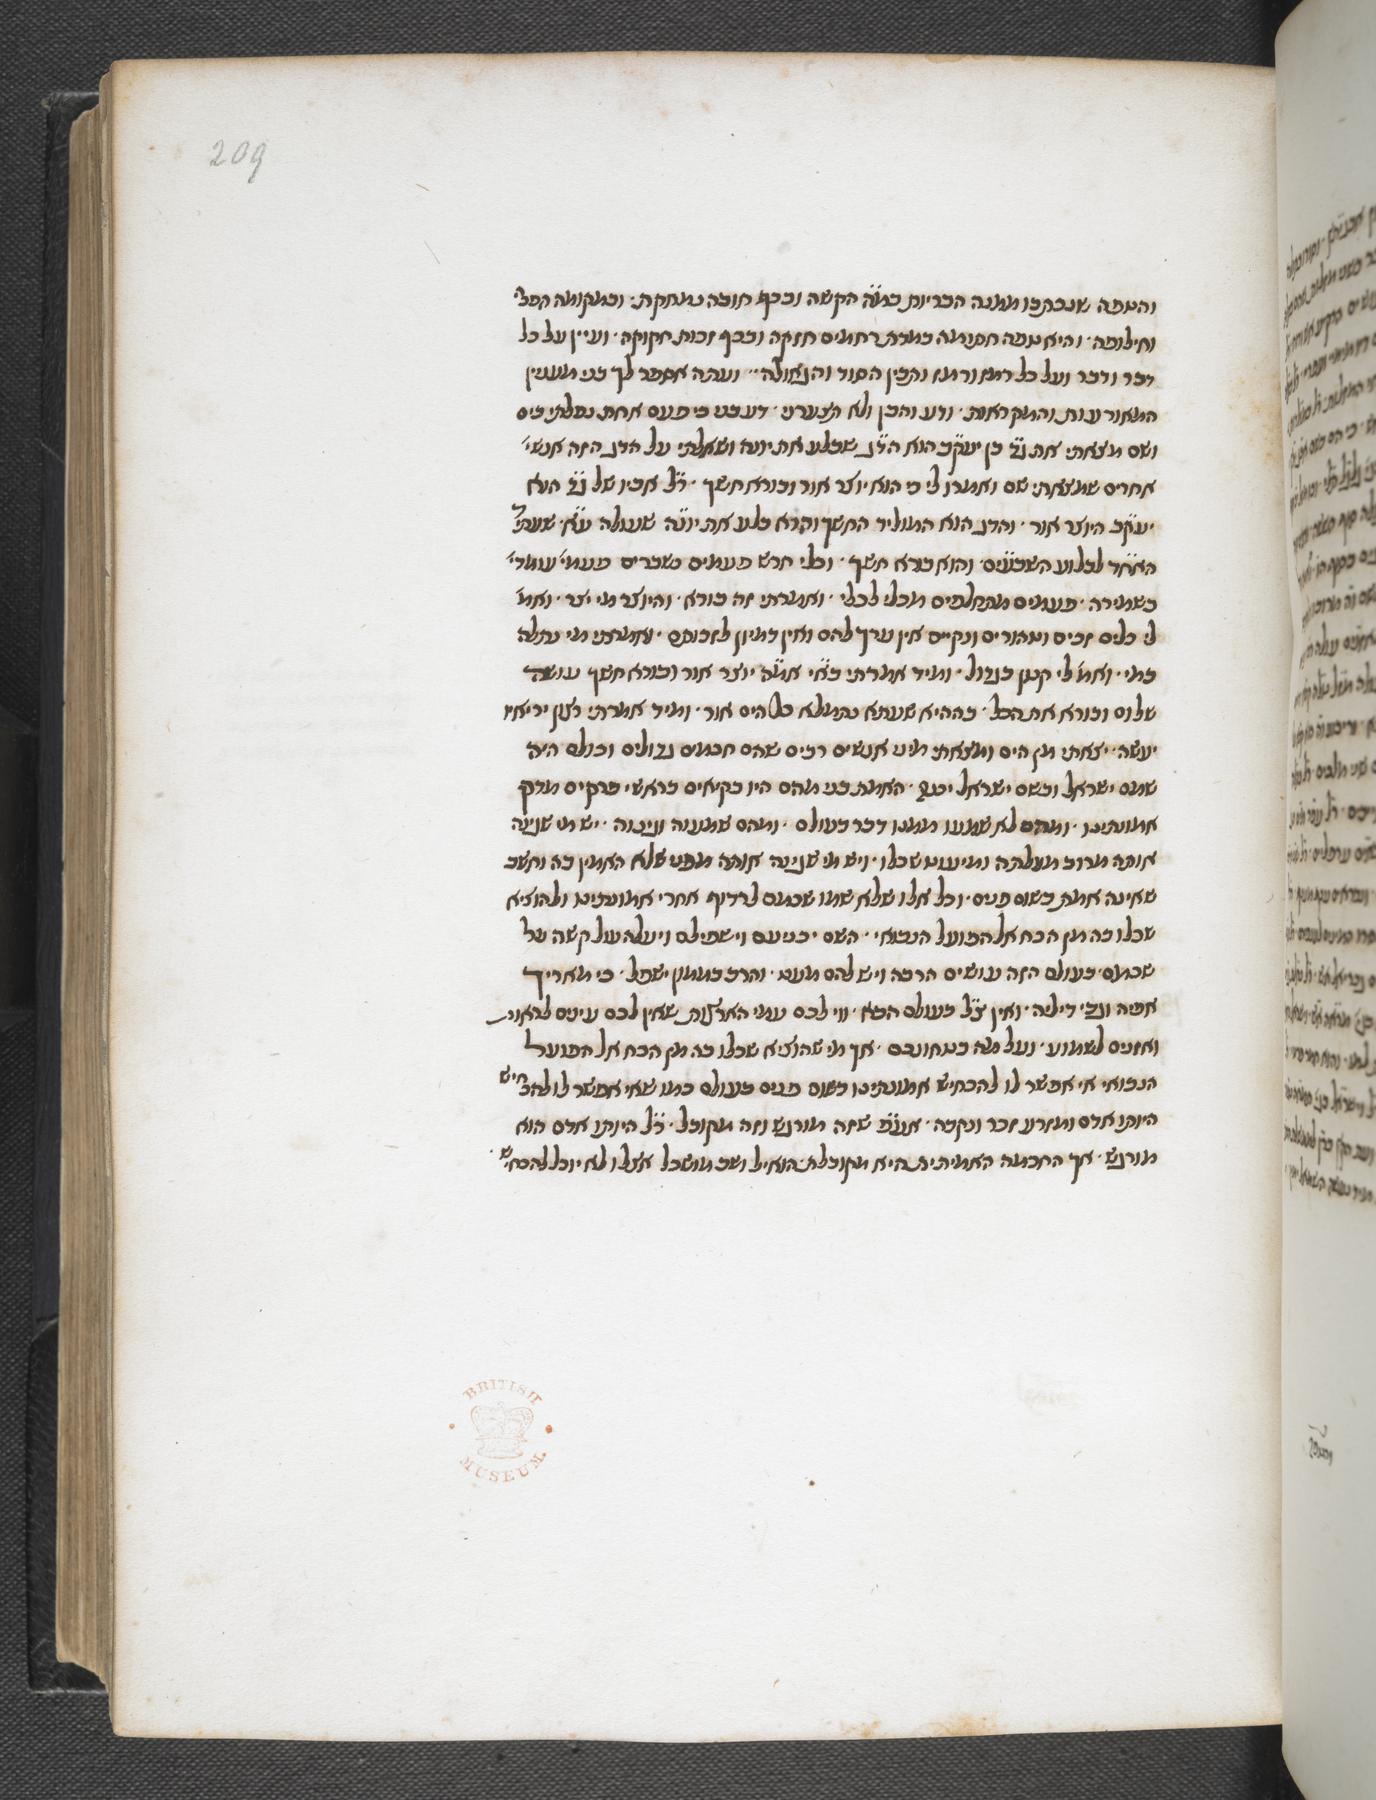 209
והטפה שנכתבו ממנה הבריות במדה הקשה ובכף חובה נמחקת. ובמקומה הפכי
וחילופה. והיא טפה חסומה במדת רחמים חזקה ובכף זכות חקוקה. ועיין על כל
דבר ודבר ועל כל רמז ורמז והבין הסוד והגאולה. ועתה אספר לך בני מענין
המאורעות והמקראות. ודע והבן ולא תצערני. דע בני כי פעם אחת נפלתי בים
ושם מצאתי את גד בן יעקב הוא הדג שבלע את יונה ושאלתי על הדג הזה אנשי
אחרים שמצאתי שם ואמרו לי כי הוא יוצר אור ובורא חשך. ר״ל אביו של גד הוא
יעקב היוצר אור. והדג הוא המוליד החשך וקרא בלע את יונה שעולה ע״א. שעתי
האחד לבלוע השבעים. והוא ברא חשך. וכלי חרש פעמים נשברים פעמי׳ עומדי׳
בשמירה. פעמים מתחלפים מכלי לכלי. ואמרתי זה בורא. והיוצר מי יצר. ואמ׳
לי כלים זכים וטהורים ונקיים אין ערך להם ואין דמיון לזכותם. ואמרתי מי נתלה
במי. ואמ׳ לי קטן בגדול. ומיד אמרתי בא״י אמ״ה יוצר אור ובורא חשך עושה
שלום ובורא את הכל. בההיא שעתא נתמלא כל הים אור. ומיד אמרתי רצון יריאיו
יעשה. יצאתי מן הים ומצאתי מיני אנשים רבים שהם חכמים גדולים וכולם היה
שמם ישראל ובשם ישראל יכנה. האמת בני מהם היו בקיאים בראשי פרקים מדק
אמונתינו. ומהם לא שמעו ממנו דבר בעולם. ומהם שמעוה וגינוה. יש מי שגינה
אותה מרוב מעלתה ומיעוט שכלו. ויש מי שגינה אותה מפני שלא האמין בה וחשב
שאינה אמת בשום פנים. וכל אלו שלא שמו שכמם לרדוף אחרי אמונתינו ולהוציא
שכלו בה מן הכח אל הפועל הנבואי. השם יכניעם וישפילם ויעלה עול קשה על
שכמם. בעולם הזה עושים הרבה ויש להם מעט. והרב בממון ישפל. כי מאריך
אפיה וגבי דיליה. ואין צ״ל בעולם הבא. ווי לכם עמי הארצות שאין לכם עינים לראות
ואזנים לשמוע. ועל מה בטחונכם. אך מי שהוציא שכלו בה מן הכח אל הפועל
הנבואי אי אפשר לו להכחיש אמונתינו בשום פנים בעולם כמו שאי אפשר לו להכחיש
היותו אדם ומזרע זכר ונקבה. אעפ שזה מורגש וזה מקובל. ר״ל היותו אדם הוא
מורגש. אך החכמה האמיתית היא מקובלת הואיל ושב מושכל אצלו לא יוכל להכחיש
BRITISH
MUSEUM